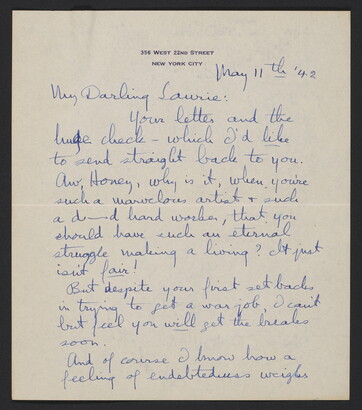 356 WEST 22ND STREET
NEW YORK CITY
May 11th '42
My Darling Laurie:
Your letter and the
huge check – which I'd like
to send straight back to you.
Aw, Honey, why is it, when you're
such a marvelous artist & such
a d——d hard worker, that you
should have such an eternal
struggle making a living? It just
isn't fair!
But despite your first set backs
in trying to get a war job, I can't
but feel you will get the breaks
soon.
And of course I know how a
feeling of endebtedness weighs